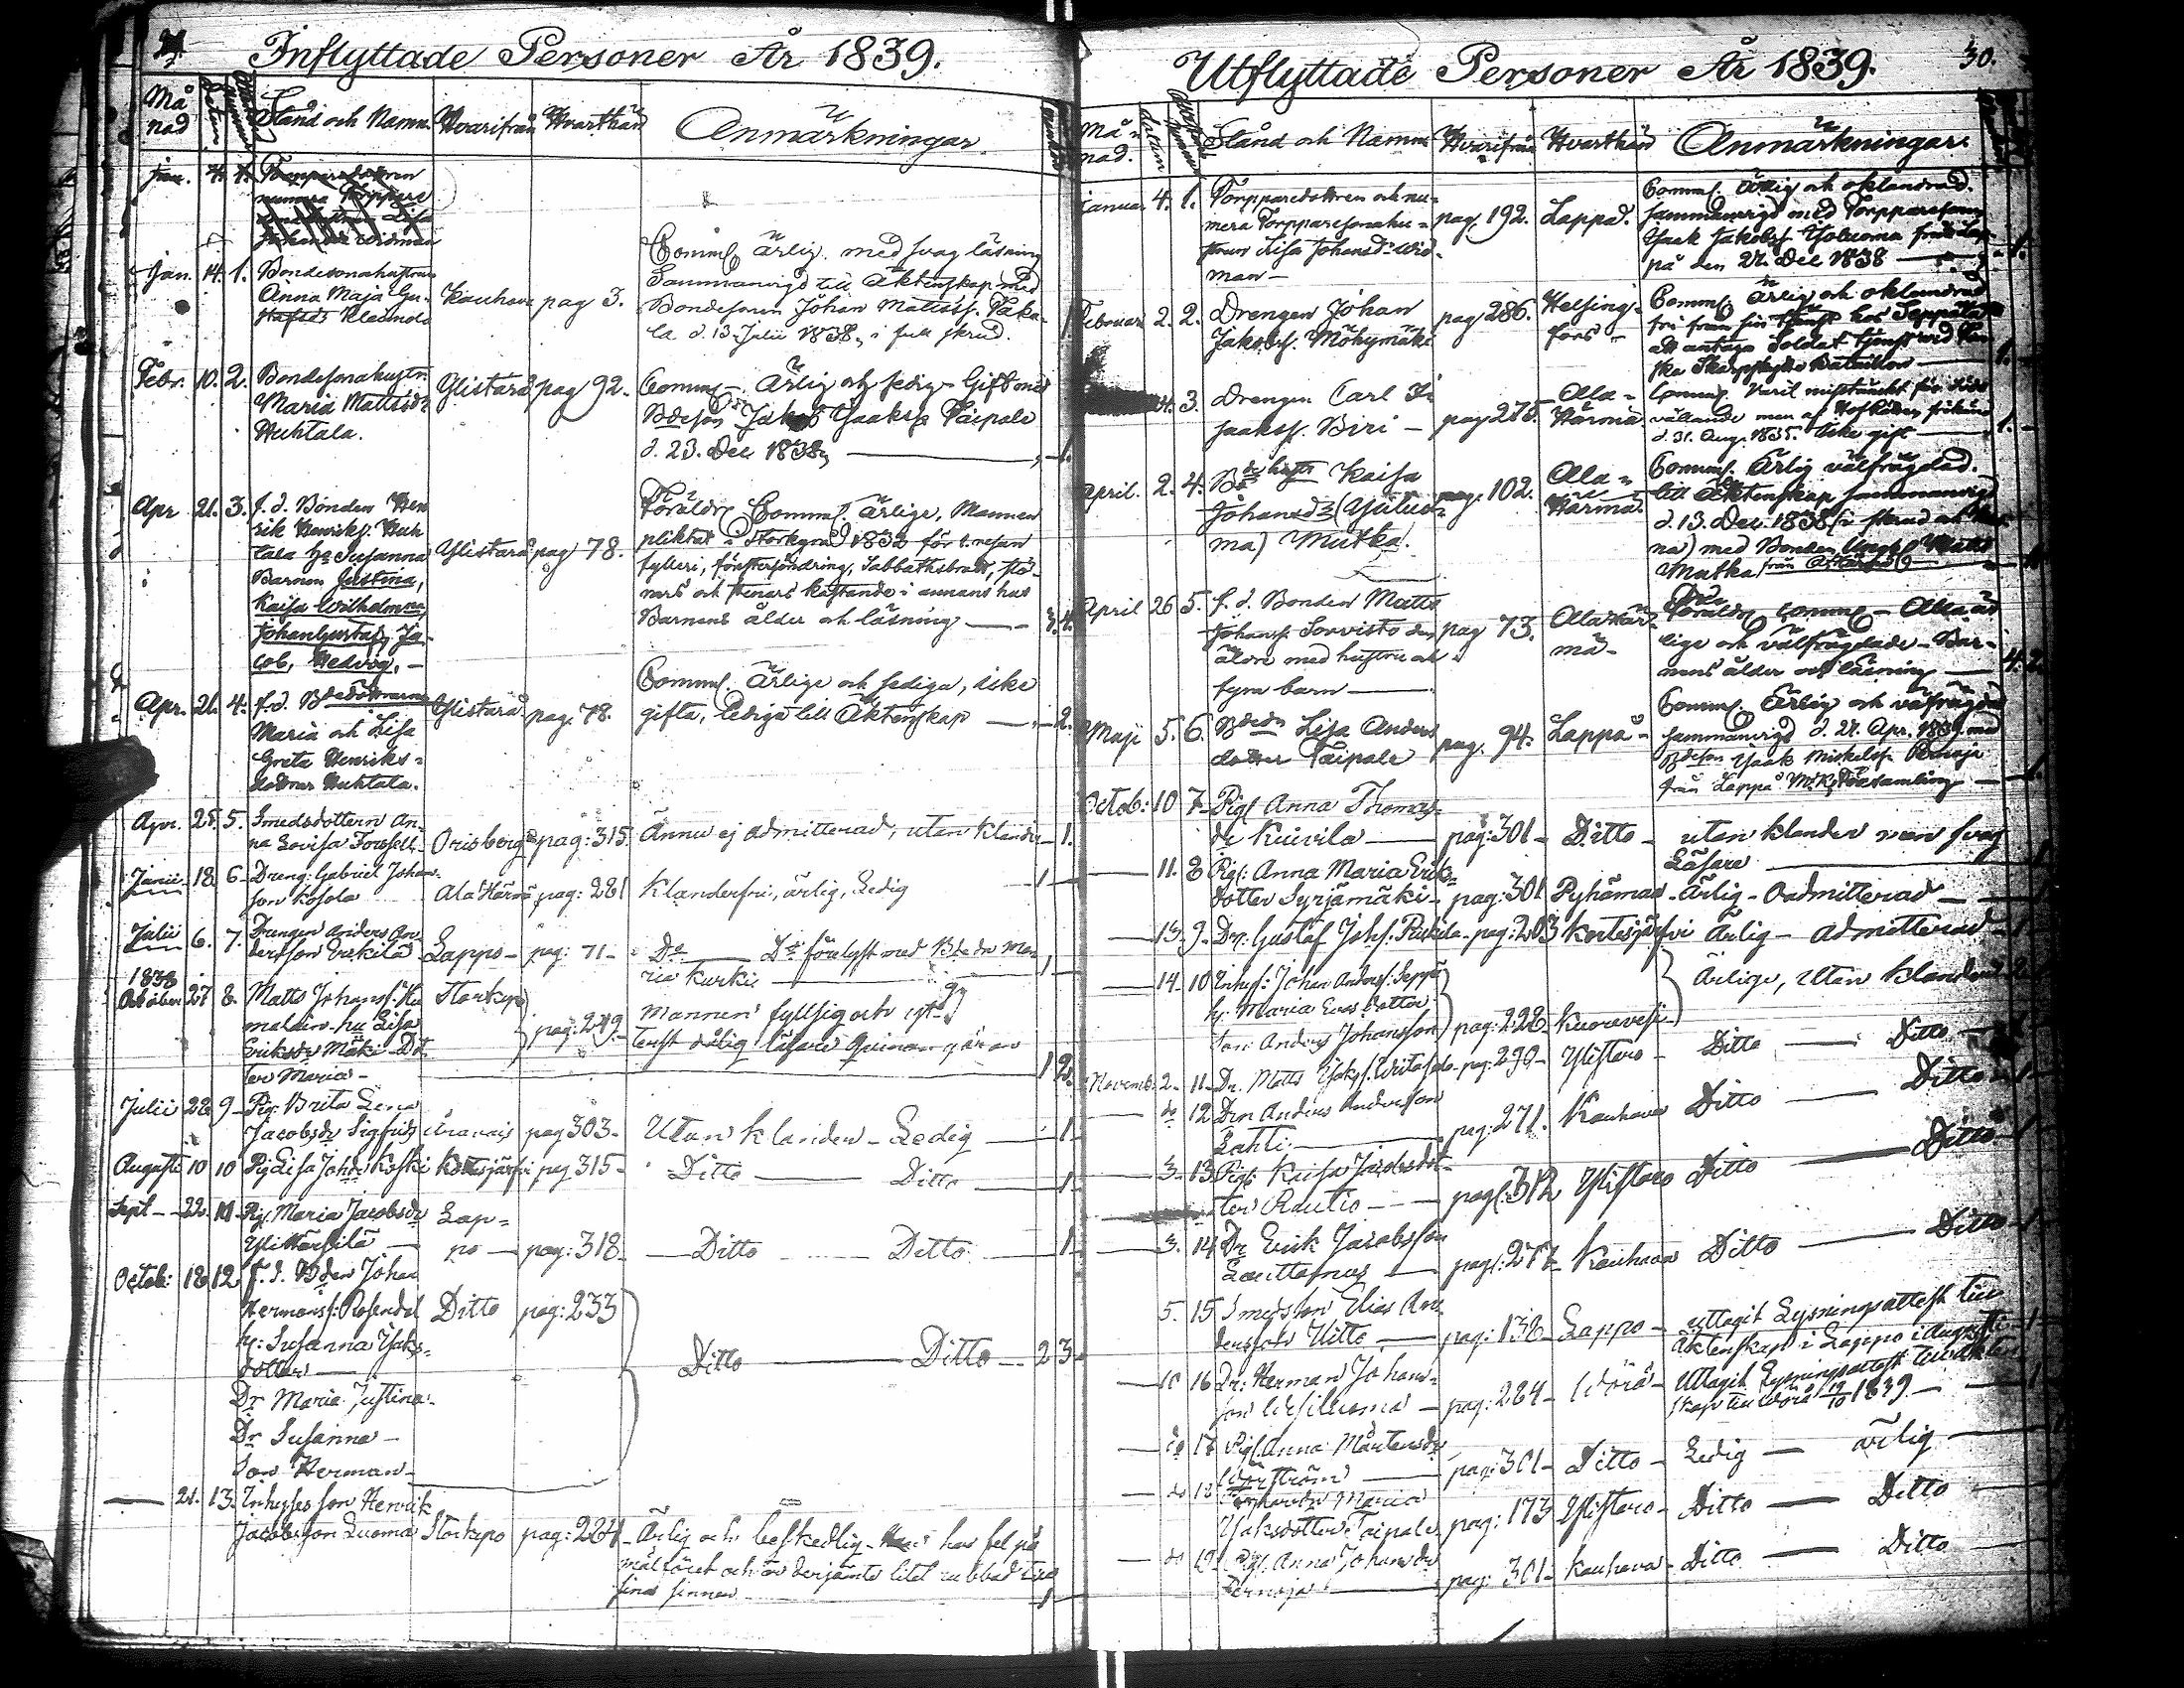 Inflyttade Personer År 1839.
Må
nad
Stånd och Namn.
Hvarifrån
Hvarthän
Anmärkningar.
Jan. 4. 1. Torparedottren
numera Torpare
Johansdr Widman
Jan. 14. 1. Bondesonahustrun
Anna Maja Gu-
stafsdr Klemola
Kauhava pag 3.
Comms. Ärlig. med svag läsning
Sammanvigd till Äktenskap med
Bondesonen Johan Mattss.
d. 13 Julii 1838, i full skrud.
Febr. 10. 2. Bondesonahustr.
Maria Mattsdr
Huhtala.
Ylistaro pag 92.
Comms. Ärlig och sedig. Gift med
Bdeson Jakob Isaaksn Taipale
d. 23. Dec 1838,
Apr 21. 3. f. d. Bonden Hen
rik Henriks. Huh
tala h. Susanna
Barnen Justina,
Kaisa Wilhelmina,
Johan Gustaf, Ja-
cob, Hedvig. -
Ylistaro pag 78.
Föräldr. Comms. Ärlige, Mannen
pliktat i Storkyro 1832 för 1. resan
fylleri, fönstersöndring, Sabbathsbrott, stö-
rars och stenars kastande i annans hus
Barnens ålder och läsning 3. 4.
Apr. 21. 4. f. d. Bdedöttrarne
Maria och Lisa
Greta Henriks-
döttrar Huhtala.
Ylistaro pag. 78.
Comms. Ärlige och sediga, icke
gifta, lediga till Äktenskap 2.
Apr. 25. 5. Smedsdottern An-
na Lovisa Forsell
Orisberg pag: 315
Ännu ej admitterad, utan klander 1.
Junii 18 6 Dreng. Gabriel Johans-
son Kosola
Ala Härmä pag: 281
Klanderfri, ärlig, Ledig 1
Julii 6. 7. Drengen Anders An
dersson Erkilä
Lappo pag: 71
Do Do förlyst med Bdedr Ma-
ria Kurki 1
1838
October 27 8. Matts Johanss. Hu
malain hu Lisa
Eriksdr Mäki Dot
ter Maria
Storkyro pag: 249
Mannen fyllsig och
1 2.
Julii 28 9 Pig. Brita Lena
Jacobsdr Sigfrids
Oravais pag 303
Utan klander - Ledig 1
Augusti 10 10 Pig Lisa Johsdr Koski Kortesjärfvi pag 315
Ditto Ditto 1
Sept 22 11 Pig. Maria Jacobsdr
Ylitärkilä
Lap-
po pag: 318
Ditto Ditto 1
Octob: 18 12 f. d. Bden Johan
Hermanss: Rosendal
h: Susanna Isaks-
dotter
Dr Maria Justina
Dr Susanna
Son Herman
Ditto pag: 233
Ditto Ditto 2 3
21. 13. Inhyses son Henrik
Jacobsson Luoma Storkyro pag: 224
Ärlig och beskedlig har fel på
målföret och är derjämte litet rubbad till
sina sinnen 1
Utflyttade Personer År 1839.
30.
Må-
nad.
datum
Stånd och Namn
Hvarifrån
Hvarthän
Anmärkningar.
Januar. 4. 1. Torparedottren och nu-
mera Torparesonahu-
strun Lisa Johansdr Wid-
man
pag. 192. Lappo.
Comms. Ärlig och oklandrad.
Sammanvigd med Torparesonen
Isaak Jakobss. Yliluoma från Lap-
på den 27. Dec 1838 1.
Februari 2. 2. Drengen Johan
Jakobss. Möhymäki
pag 286. Helsing-
fors
Comms. Ärlig och oklandrad
fri från sin tjenst hos Seppälä
att antaga Soldat tjenst wid Fin
ska Skarpskytte Bataillon 1.
4. 3. Drengen Carl I-
saakss. Biri
pag 275. Alla-
Härmä
Comms. Varit misstänckt för
vållande men af Hofrätten frikänd
d. 31. Aug. 1835. Icke gift 1.
April. 2. 4. Bdehustr Kaisa
Johansdr (Yliluo-
ma) Mutka.
pag. 102. Alla-
Härmä
Comms. Ärlig välfrägdad.
till Äktenskap sammanvigd
d. 13. Dec. 1838 (i skrud och
na) med Bonden Matts
Mutka från
April 26 5. f. d. Bonden Matts
Johans. Sorvisto den
äldre med hustru och
fyra barn
pag 73. Alla Här-
mä
Föräldr. Comms. Alla är
lige och välfrägdade. Bar-
nens ålder och läsning 4. 2.
Maji 5. 6. Bdedr Lisa Anders
dotter Taipale
pag. 94. Lappo
Comms. Ärlig och välfrägdad
sammanvigd d. 27. Apr. 1839 med
Bdeson Isaak Mickelss. Pernaja
från Lappå Församling 1.
Octob: 10 7 Pig. Anna Thomas-
dr Kuivila
pag: 301 Ditto
utan klander men svag
Läsare
11. 8 Pig: Anna Maria Eriks-
dotter Syrjämäki pag: 301 Pyhämaa Ärlig - Oadmitterad
13. 9 Dr: Gustaf Johs. pag: 203 Kortesjärfvi Ärlig - admitterad 1
14. 10 Inhys: Johan Anders. Seppä
h: Maria Ersdotter
Son Anders Johansson
pag: 228 Kuorevesi
Ärlige, utan klander
Novemb: 2 11 Dr. Matts Isaks. pag: 290 Ylistaro Ditto Ditto
do 12 Dr. Anders Andersson
Lahti
pag: 271. Kauhava Ditto Ditto 1
3 13 Pig: Kaisa Jacobsdot-
ter Rautio
pag: 312 Ylistaro Ditto Ditto 1
3. 14 Dr Erik Jacobsson
pag: 277 Kauhava Ditto Ditto 1
5. 15 Smedsson Elias An-
dersson Uitto
pag: 138 Lappo
uttagit Lysningsattest till
Äktenskap i Lappo i Augusti 1
10 16 Dr: Herman Johans-
son
pag: 284 Wörå
Uttagit Lysningsattest till Äkten
skap till Wörå 19/10 1839 1
do 17 Pig. Anna Mårtensdr
pag: 301 Ditto Ledig ärlig
do 18 Maria
Isaksdotter Taipale
pag: 173 Ylistaro Ditto Ditto
do 19 Pig. Anna Johansdr
Pernaja
pag: 301 Kauhava Ditto Ditto